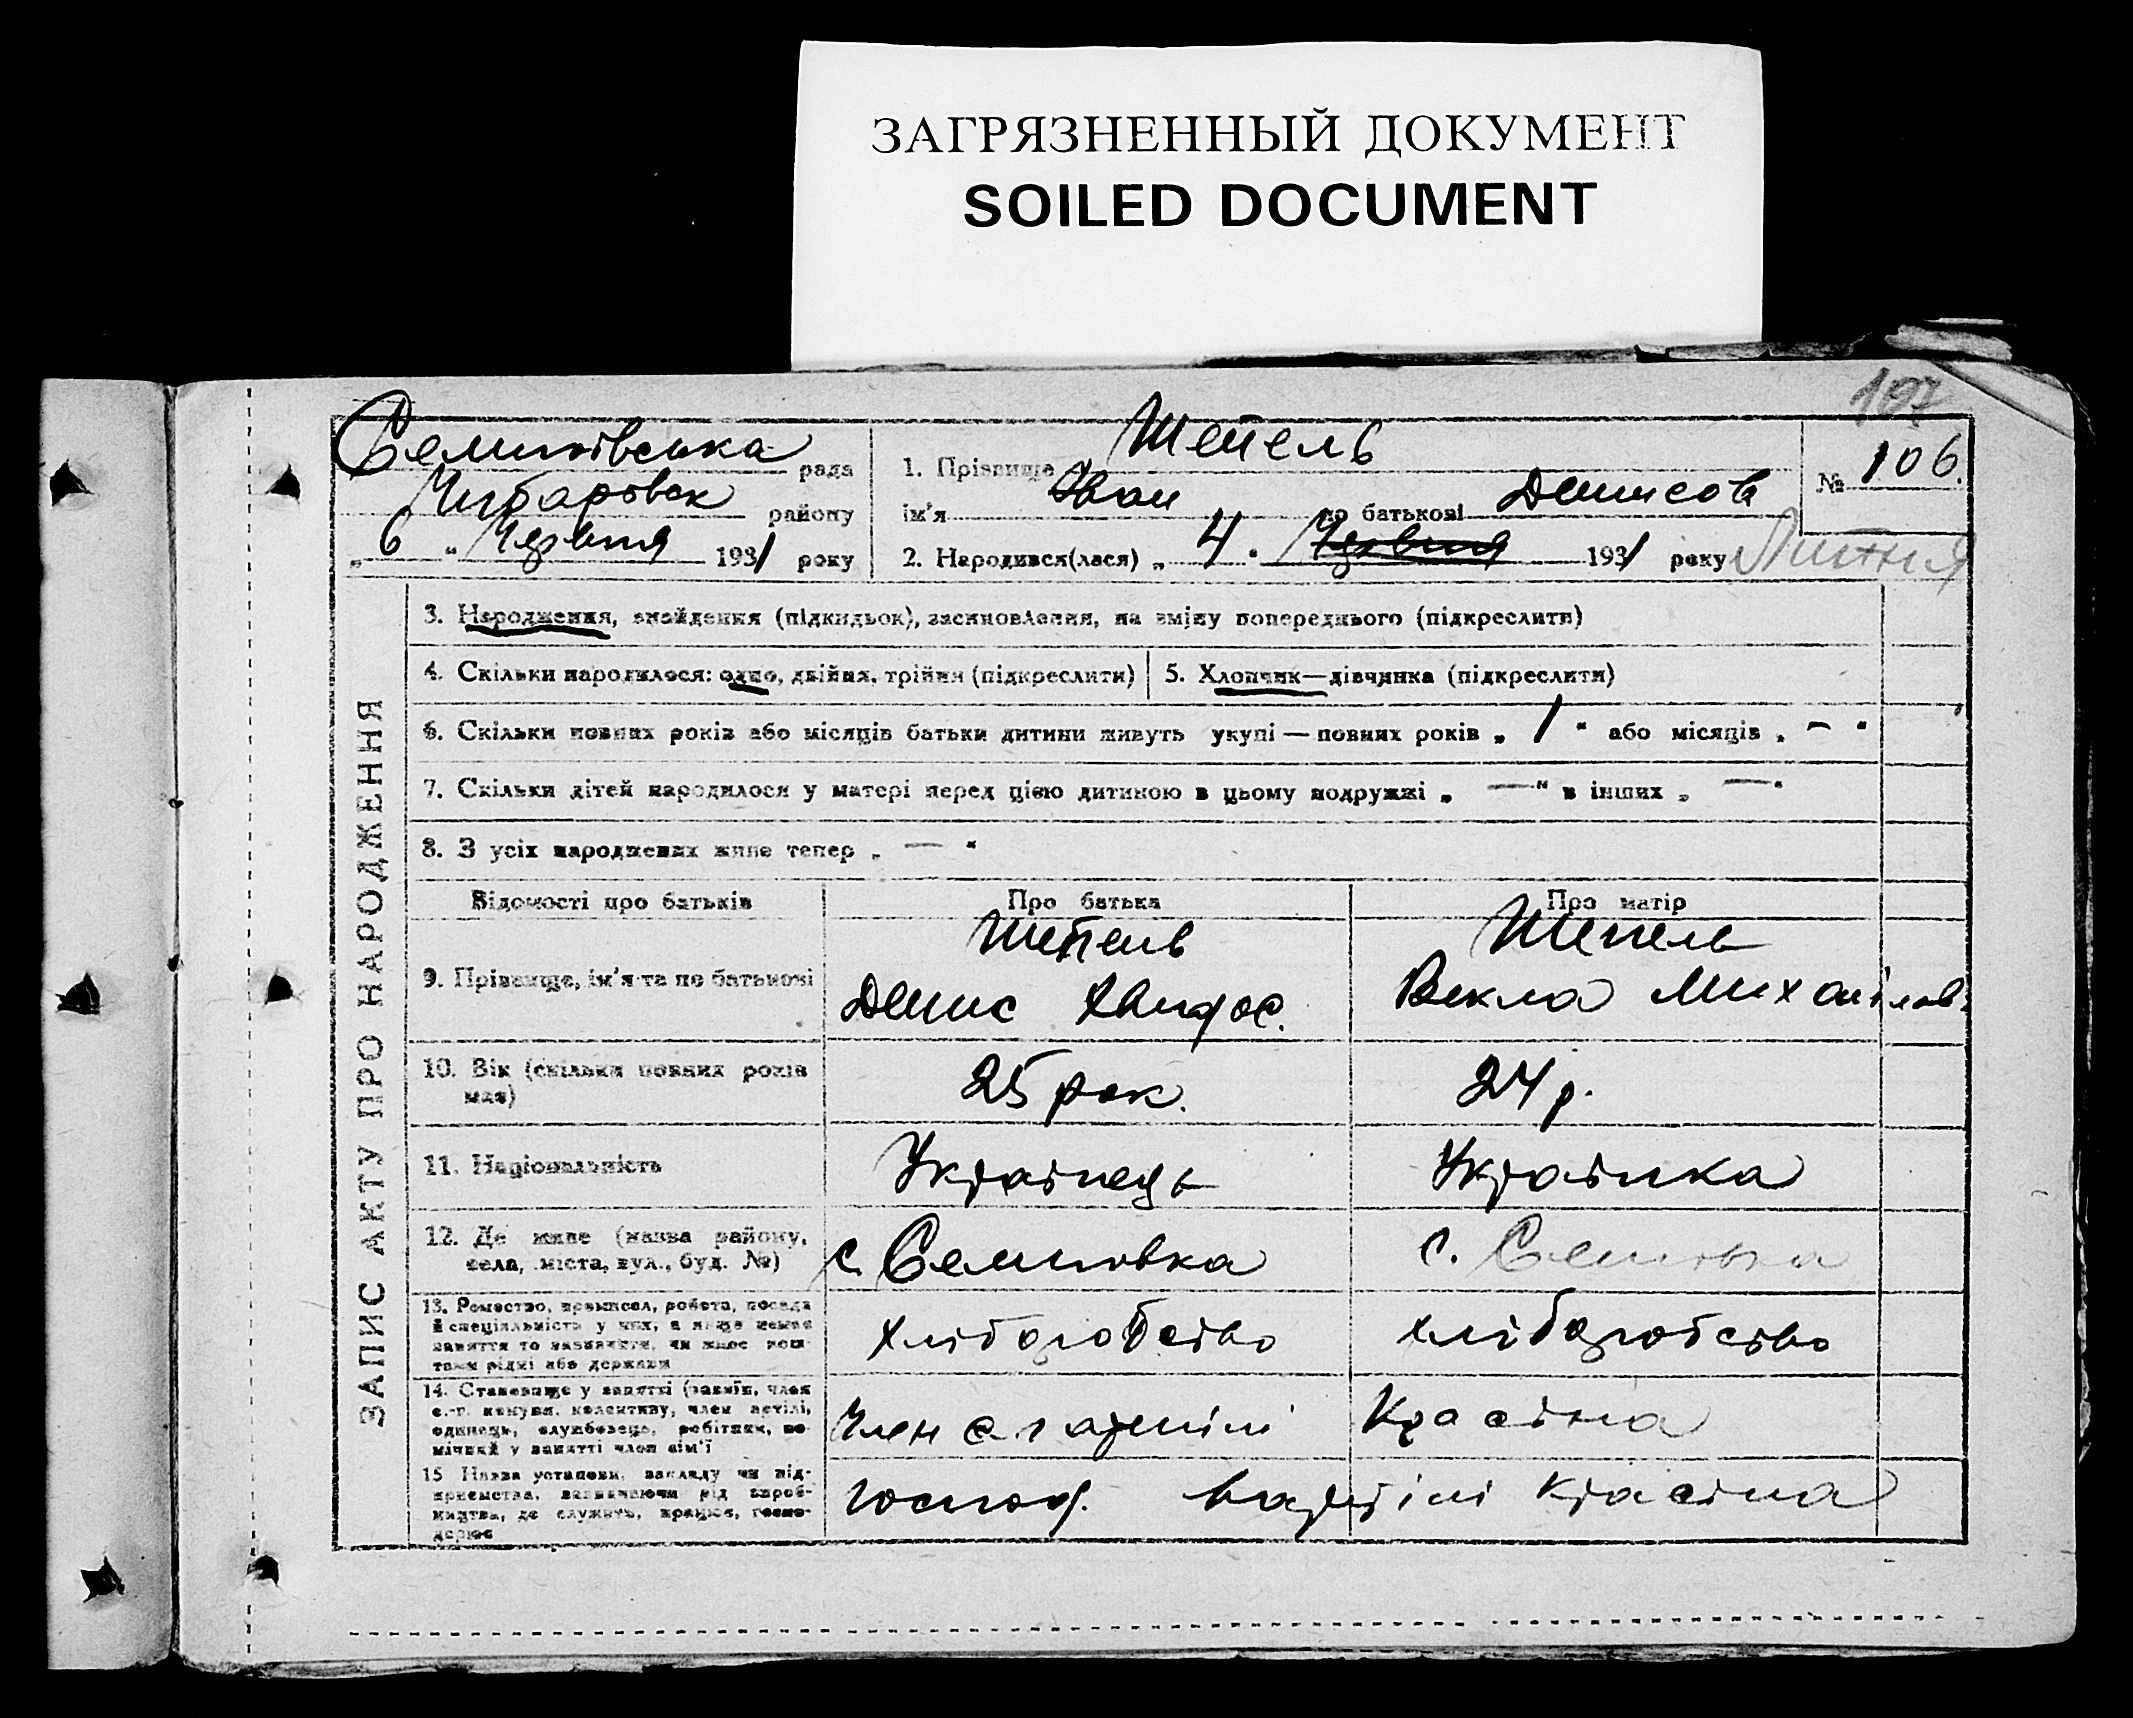 ЗАГРЯЗНЕННЫЙ ДОКУМЕНТ
SOILED DOCUMENT
107
Семиківська рада
Чубарівськ району
„ 6 “ Червня 1931 року
1. Прізвище Шепель
ім'я Іван по батькові Денисов
2. Народився(лася) „ 4 “ Червня 1931 року Липня
№ 106.
ЗАПИС АКТУ ПРО НАРОДЖЕННЯ
3. Народження, знайдення (підкидьок), засиновлення, на зміну попереднього (підкреслити)
4. Скільки народилося: одно, двійня, трійня (підкреслити)
5. Хлопчик—дівчинка (підкреслити)
6. Скільки повних років або місяців батьки дитини живуть укупі — повних років „ 1 “ або місяців „ — “
7. Скільки дітей народилося у матері перед цією дитиною в цьому подружжі „ — “ в інших „ — “
8. З усіх народжених живе тепер „ — “
Відомості про батьків Про батька Про матір
9. Прізвище, ім'я та по батькові
Шепель
Денис
Шепель
Векла Михайлов
10. Вік (скільки повних років
має)
25 рок.
24 р.
11. Національність
Українець
Українка
12. Де живе (назва району,
села, міста, вул., буд. №)
с.
с.
13. Ремество, промисел, робота, посада
й спеціяльність у них, а якщо немає
заняття то зазначити, чи живе кош-
том рідні або держави
Хлібогобство
хлібогобство
14. Становище у занятті (хазяїн, член
с.-г. комуни, колективу, член артілі,
одинець, службовець, робітник, по-
мічний у занятті член сім'ї
Член с.г артілі
Красіна
15 Назва установи, закладу чи під-
приємства, зазначаючи рід вироб-
ництва, де служить, працює, госпо-
дарює
господ. в артілі Красіна